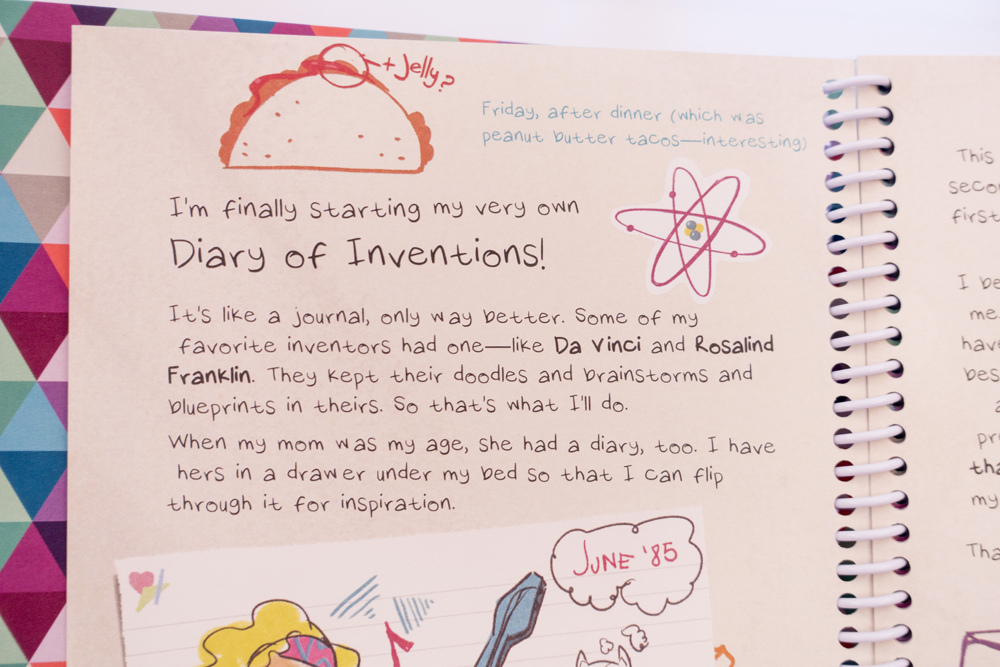 + Jelly?
Friday, after dinner (which was
peanut butter tacos—interesting)
I'm finally starting my very own
Diary of Inventions!
It's like a journal, only way better. Some of my
favorite inventors had one—like Da Vinci and Rosalind
Franklin. They kept their doodles and brainstorms and
blueprints in theirs. So that's what I'll do.
When my mom was my age, she had a diary, too. I have
hers in a drawer under my bed so that I can flip
through it for inspiration.
JUNE '85
This
first
I be
me.
my